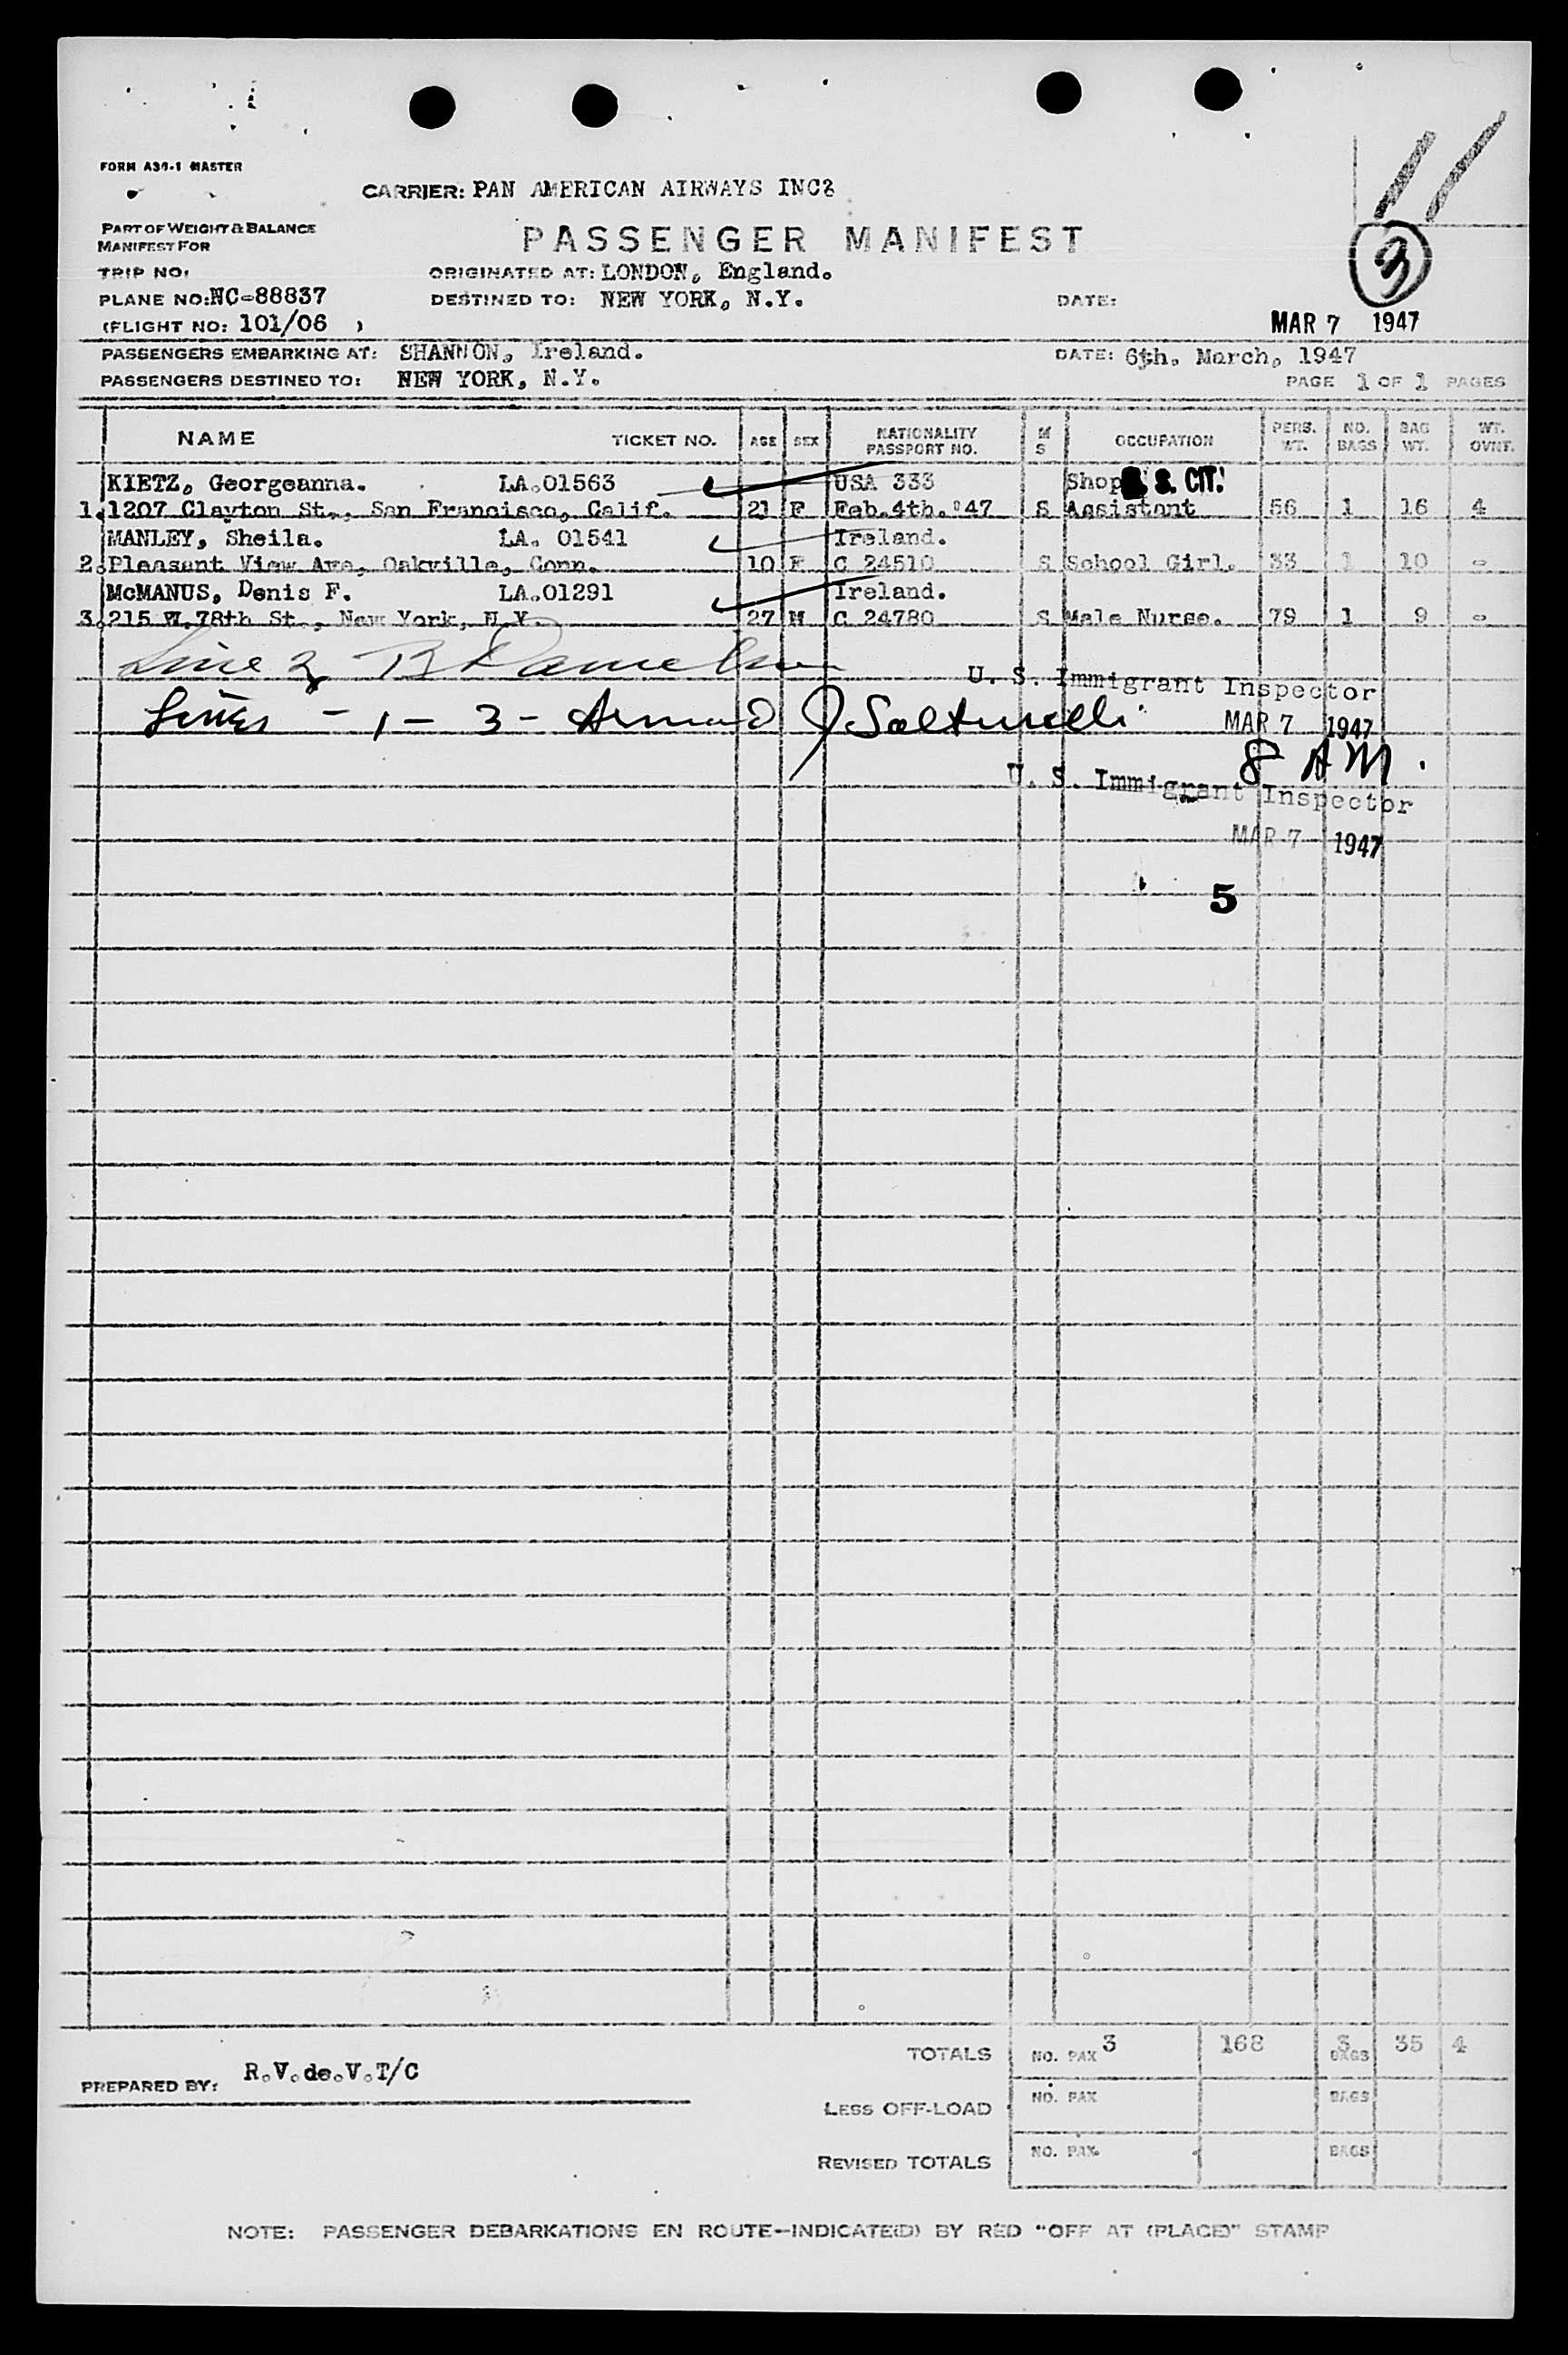 11
FORM A30-1 MASTER
CARRIER: PAN AMERICAN AIRWAYS INC&
PART OF WEIGHT & BALANCE
MANIFEST FOR
PASSENGER MANIFEST
3
TRIP NO:
ORIGINATED AT: LONDON, England.
PLANE NO: NC-88837
DESTINED TO: NEW YORK, N.Y.
DATE:
(FLIGHT NO: 101/06 )
MAR 7 1947
PASSENGERS EMBARKING AT: SHANNON, Ireland.
DATE: 6th. March, 1947
PASSENGERS DESTINED TO: NEW YORK, N.Y.
PAGE 1 OF 1 PAGES
NAME TICKET NO. AGE SEX NATIONALITY PASSPORT NO. M S OCCUPATION PERS. WT. NO. BAGS BAG WT. WT. OVNT.
KIETZ, Georgeanna. LA.01563 USA 333 Shop S. CIT.
1. 1207 Clayton St., San Francisco, Calif. 21 F Feb.4th.'47 S Assistant 56 1 16 4
MANLEY, Sheila. LA. 01541 Ireland.
2. Pleasant View Ave, Oakville, Conn. 10 F C 24510 S School Girl. 33 1 10 -
McMANUS, Denis F. LA.01291 Ireland.
3. 215 W.78th St., New York, N.Y. 27 M C 24780 S Male Nurse. 79 1 9 -
Line 2
U. S. Immigrant Inspector
Lines - 1 - 3 - Armand J
MAR 7 1947
8 AM.
U. S. Immigrant Inspector
MAR 7 1947
5
TOTALS NO. PAX 3 168 3 BAGS 35 4
PREPARED BY: R.V.de.V.T/C
LESS OFF-LOAD NO. PAX BAGS
REVISED TOTALS NO. PAX. BAGS
NOTE: PASSENGER DEBARKATIONS EN ROUTE-INDICATE(D) BY RED "OFF AT (PLACE)" STAMP